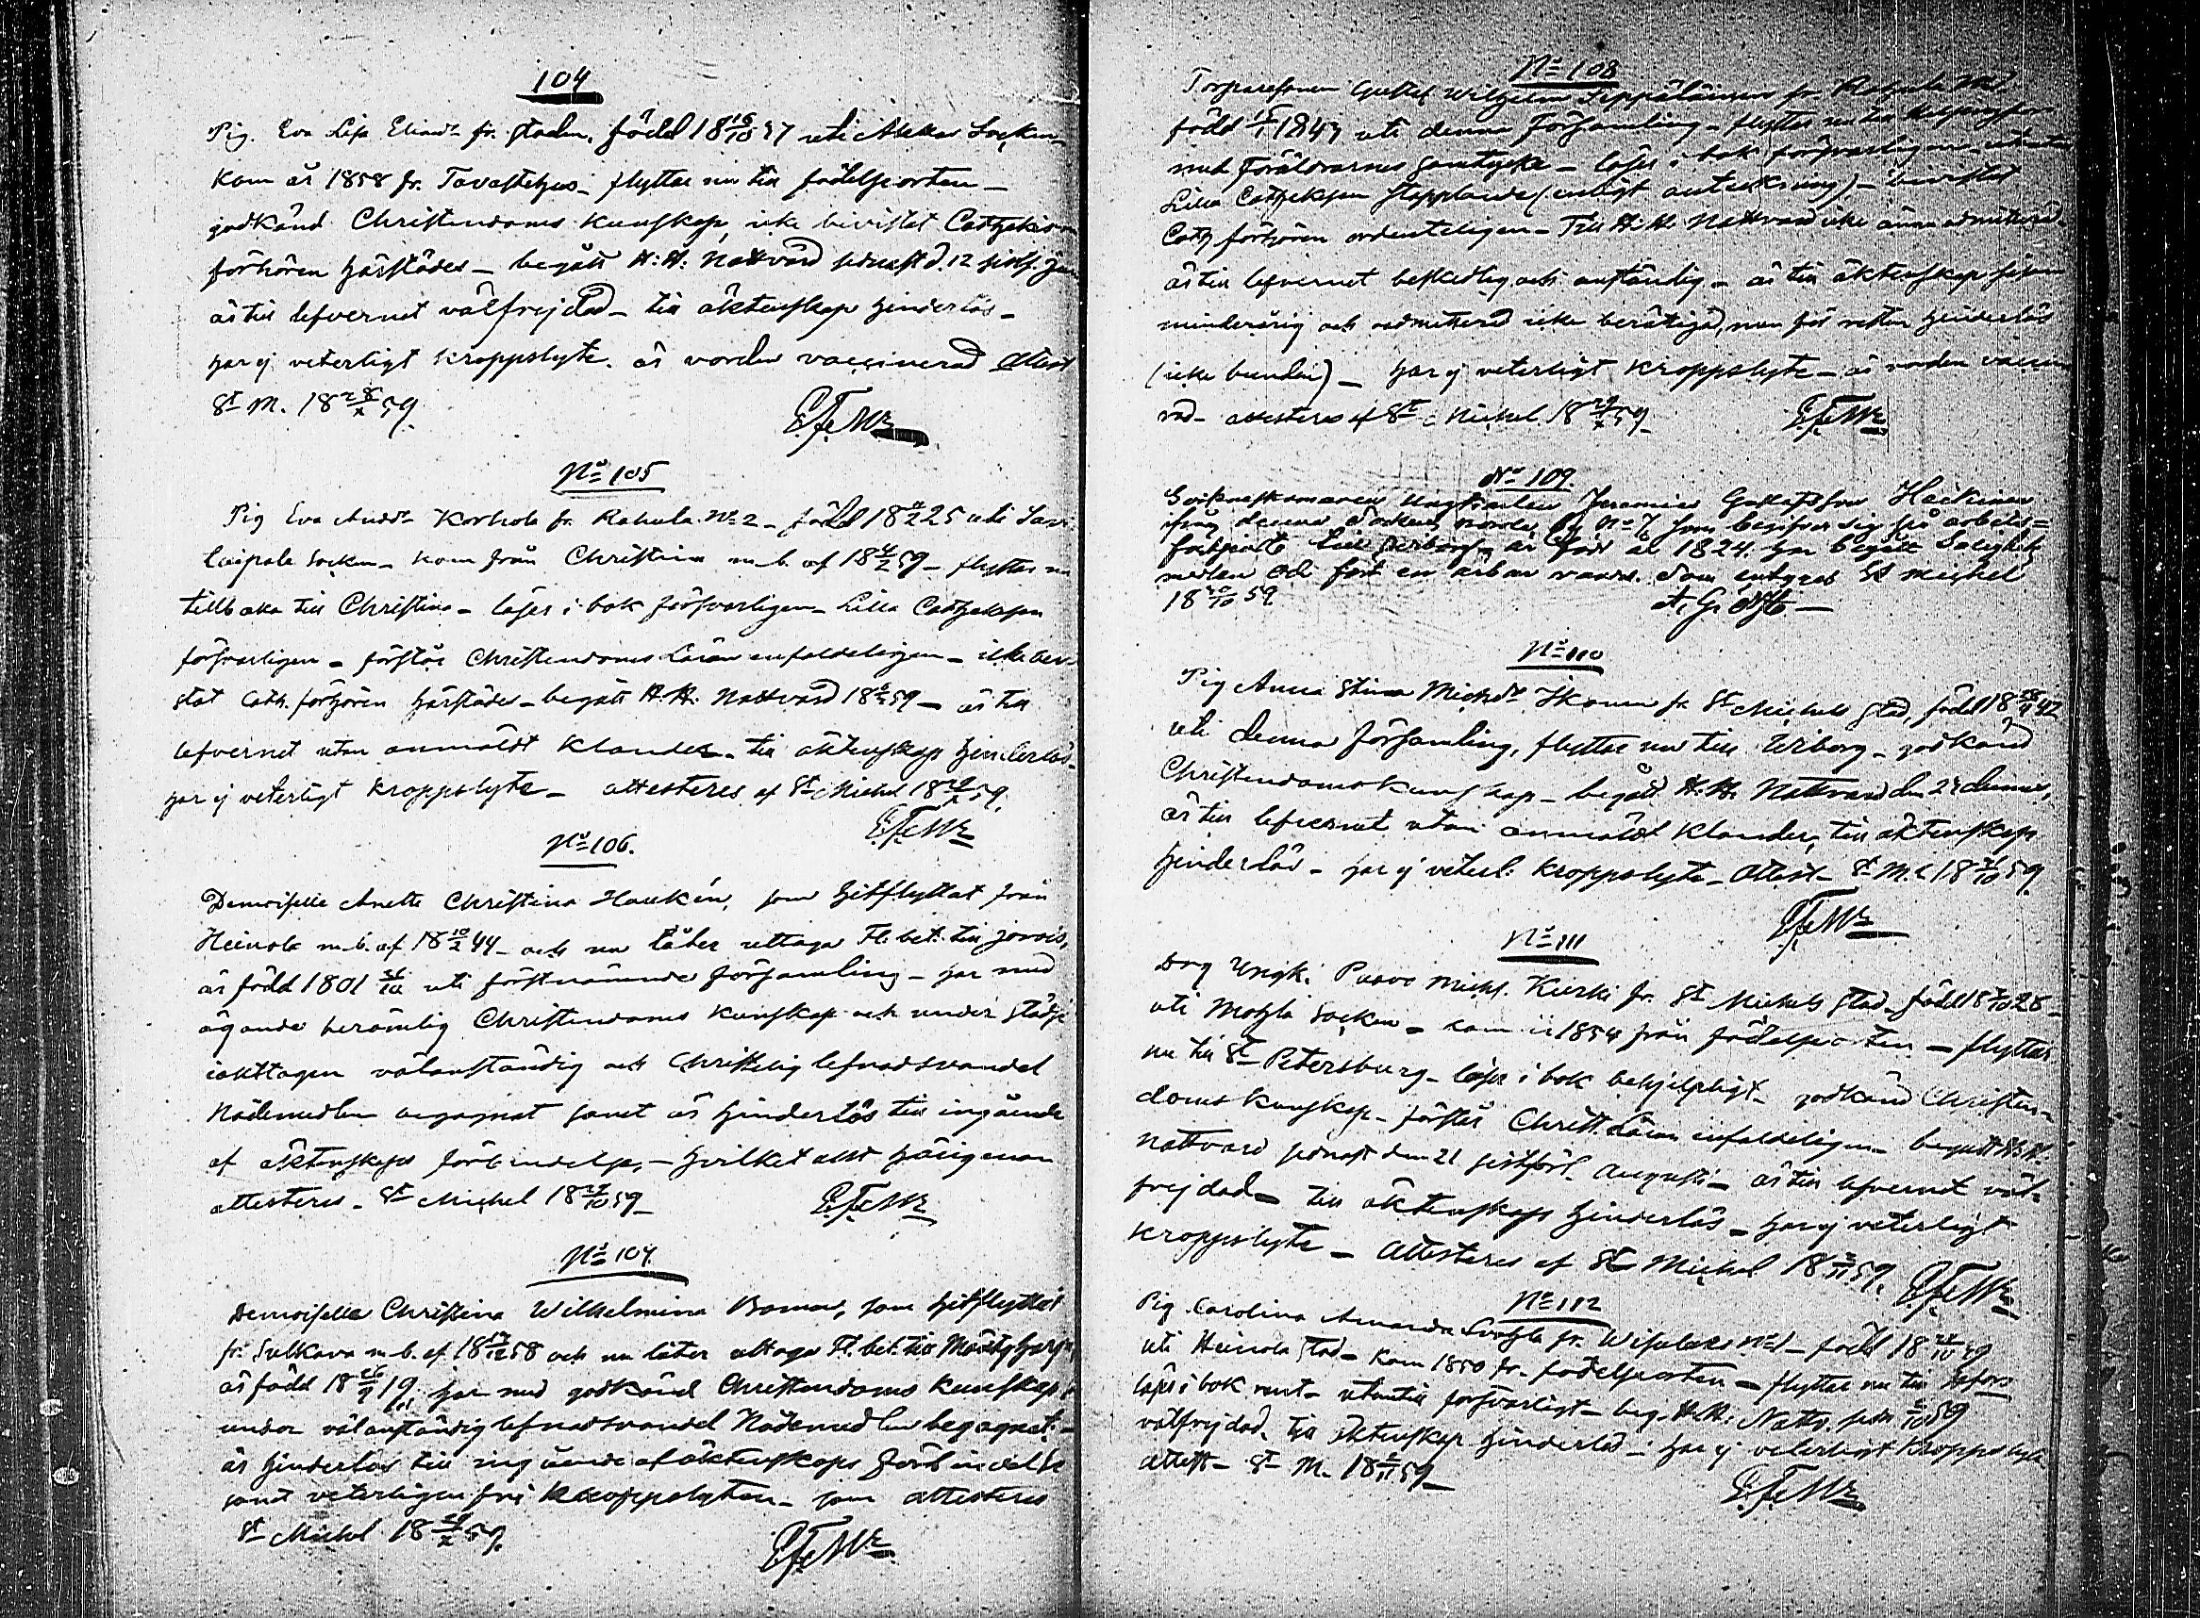 104
Pig. Eva Lisa Eliasdr fr. staden, född 18 15/10 37 uti Akkas Socken
kom år 1858 fr. Tavastehus – flyttar nu till födelseorten –
godkänd Christendoms kunskap, icke bivistat Cathekis
förhören härstädes – begått H: H: Nattvard senast d. 12 sistl.
är till lefvernet välfrejdad – till äktenskap hinderlös –
har ej veterligt kroppslyte. är vorden vaccinerad attest
St M. 18 28/x 59.
No 105
Pig Eva Andsdr Korhola fr. Rahula No 2 – född 18 2 25 uti Savi
taipale Socken – kom från Christina m. b. af 18 2 59 – flyttar nu
tillbaka till Christina – läser i bok försvarligen – Lilla Cathekesen
försvarligen – förstår Christendoms Läran enfaldeligen – icke bevi
stat Cath. förhören härstädes – begått H. H: Nattvard 18 59 – är till
lefvernet utan anmäldt klander – till äktenskap hinderlös –
har ej veterligt kroppslyte – attesteres af St Michel 18 29/x 59.
No 106.
Demoiselle Anette Christina Haukén, som hitflyttat från
Heinola m. b. af 18 10/2 44 – och nu låter uttaga Fl. bet. till Jorois,
är född 1801 /10 uti förstnämnde församling – har med
ägande berömlig Christendoms kunskap och under städse
iakttagen välanständig och Christelig lefnadsvandel
Nådemedlen begagnat samt är hinderlös till ingående
af äktenskaps förbindelse, – hvilket allt härigenom
attesteres – St Michel 18 29/10 59 –
No 107.
Demoiselle Christina Wilhelmina Boman, som hitflyttat
fr. Sulkava m. b. af 18 /12 58 och nu låter uttaga Fl. bet. till Mäntyharju,
är född 18 26/9 19, har med godkänd Christendoms kunskap,
under välanständig lefnadsvandel Nådemedlen begagnat. –
är hinderlös till ingående af äktenskaps förbindelse
samt veterligen fri kroppslyten – som attesteres
St Michel 18 29/x 59.
No 108
Torparesonen Gustaf Wilhelm Seppäläinen fr. Rahula No
född 15/1 1843 uti denna Församling – flyttar nu till Helsingfors
med Föräldrarnes samtycke – läser i bok försvarligen, utantill
Lilla Cathekesen stapplande (enligt anteckning) – bevistat
Cath förhören ordenteligen – Till H. H. Nattvard icke ännu admitterad.
är till lefvernet beskedlig och anständig – är till äktenskap såsom
minderårig och oadmitterad icke berättigad, men för resten hinderlös
(icke bunden) – har ej veterligt kroppslyte – är vorden vaccine
rad – attesteres af St Michel 18 29/x 59 –
No 109.
ungkarlen Jeremias Gustafsson Häckinen
ifrån denna Socken, Norola By No 7, som begifver sig på arbets=
förtjenst till Wiborg, är född år 1824. har begått Salighets
medlen och fört en ärbar vandel. Som intygas St Michel
18 /10 59
No 110
Pig Anna Stina Michsdr Ikonen fr St Michels Stad, född 18 /11 42
uti denna församling, flyttar nu till Wiborg – godkänd
Christendomskunskap – begått H. H. Nattvard den 24 dennes,
är till lefvernet utan anmäldt klander, till äktenskap
hinderlös – har ej veterl: kroppslyte – Attest – St M. 18 31/10 59.
No 111
Drg Ungk. Paavo Michs. Kurki fr. St Michels Stad – född 18 /10 28
uti Mohla Socken – kom år 1854 från födelseorten – flyttar
nu till St Petersburg – läser i bok behjelpligt – godkänd Christen-
doms kunskap – förstår Christl. Läran enfaldeligen – begått H. H.
Nattvard senast den 21 sistförl. Augusti – är till lefvernet väl-
frejdad – till äktenskap hinderlös – har ej veterligt
kroppslyte – Attesteres af St Michel 18 2/11 59.
No 112
Pig. Carolina Amanda fr. Wisulaks No 1 – född 18 /10 39
uti Heinola Stad – kom 1850 fr. födelseorten – flyttar nu till
läser i bok rent – utantill försvarligt – beg. H. H. Nattv. sen. /10 59
välfrejdad, till äktenskap hinderlös – har ej veterligt kroppslyte
attest – St M. 18 2/11 59 –